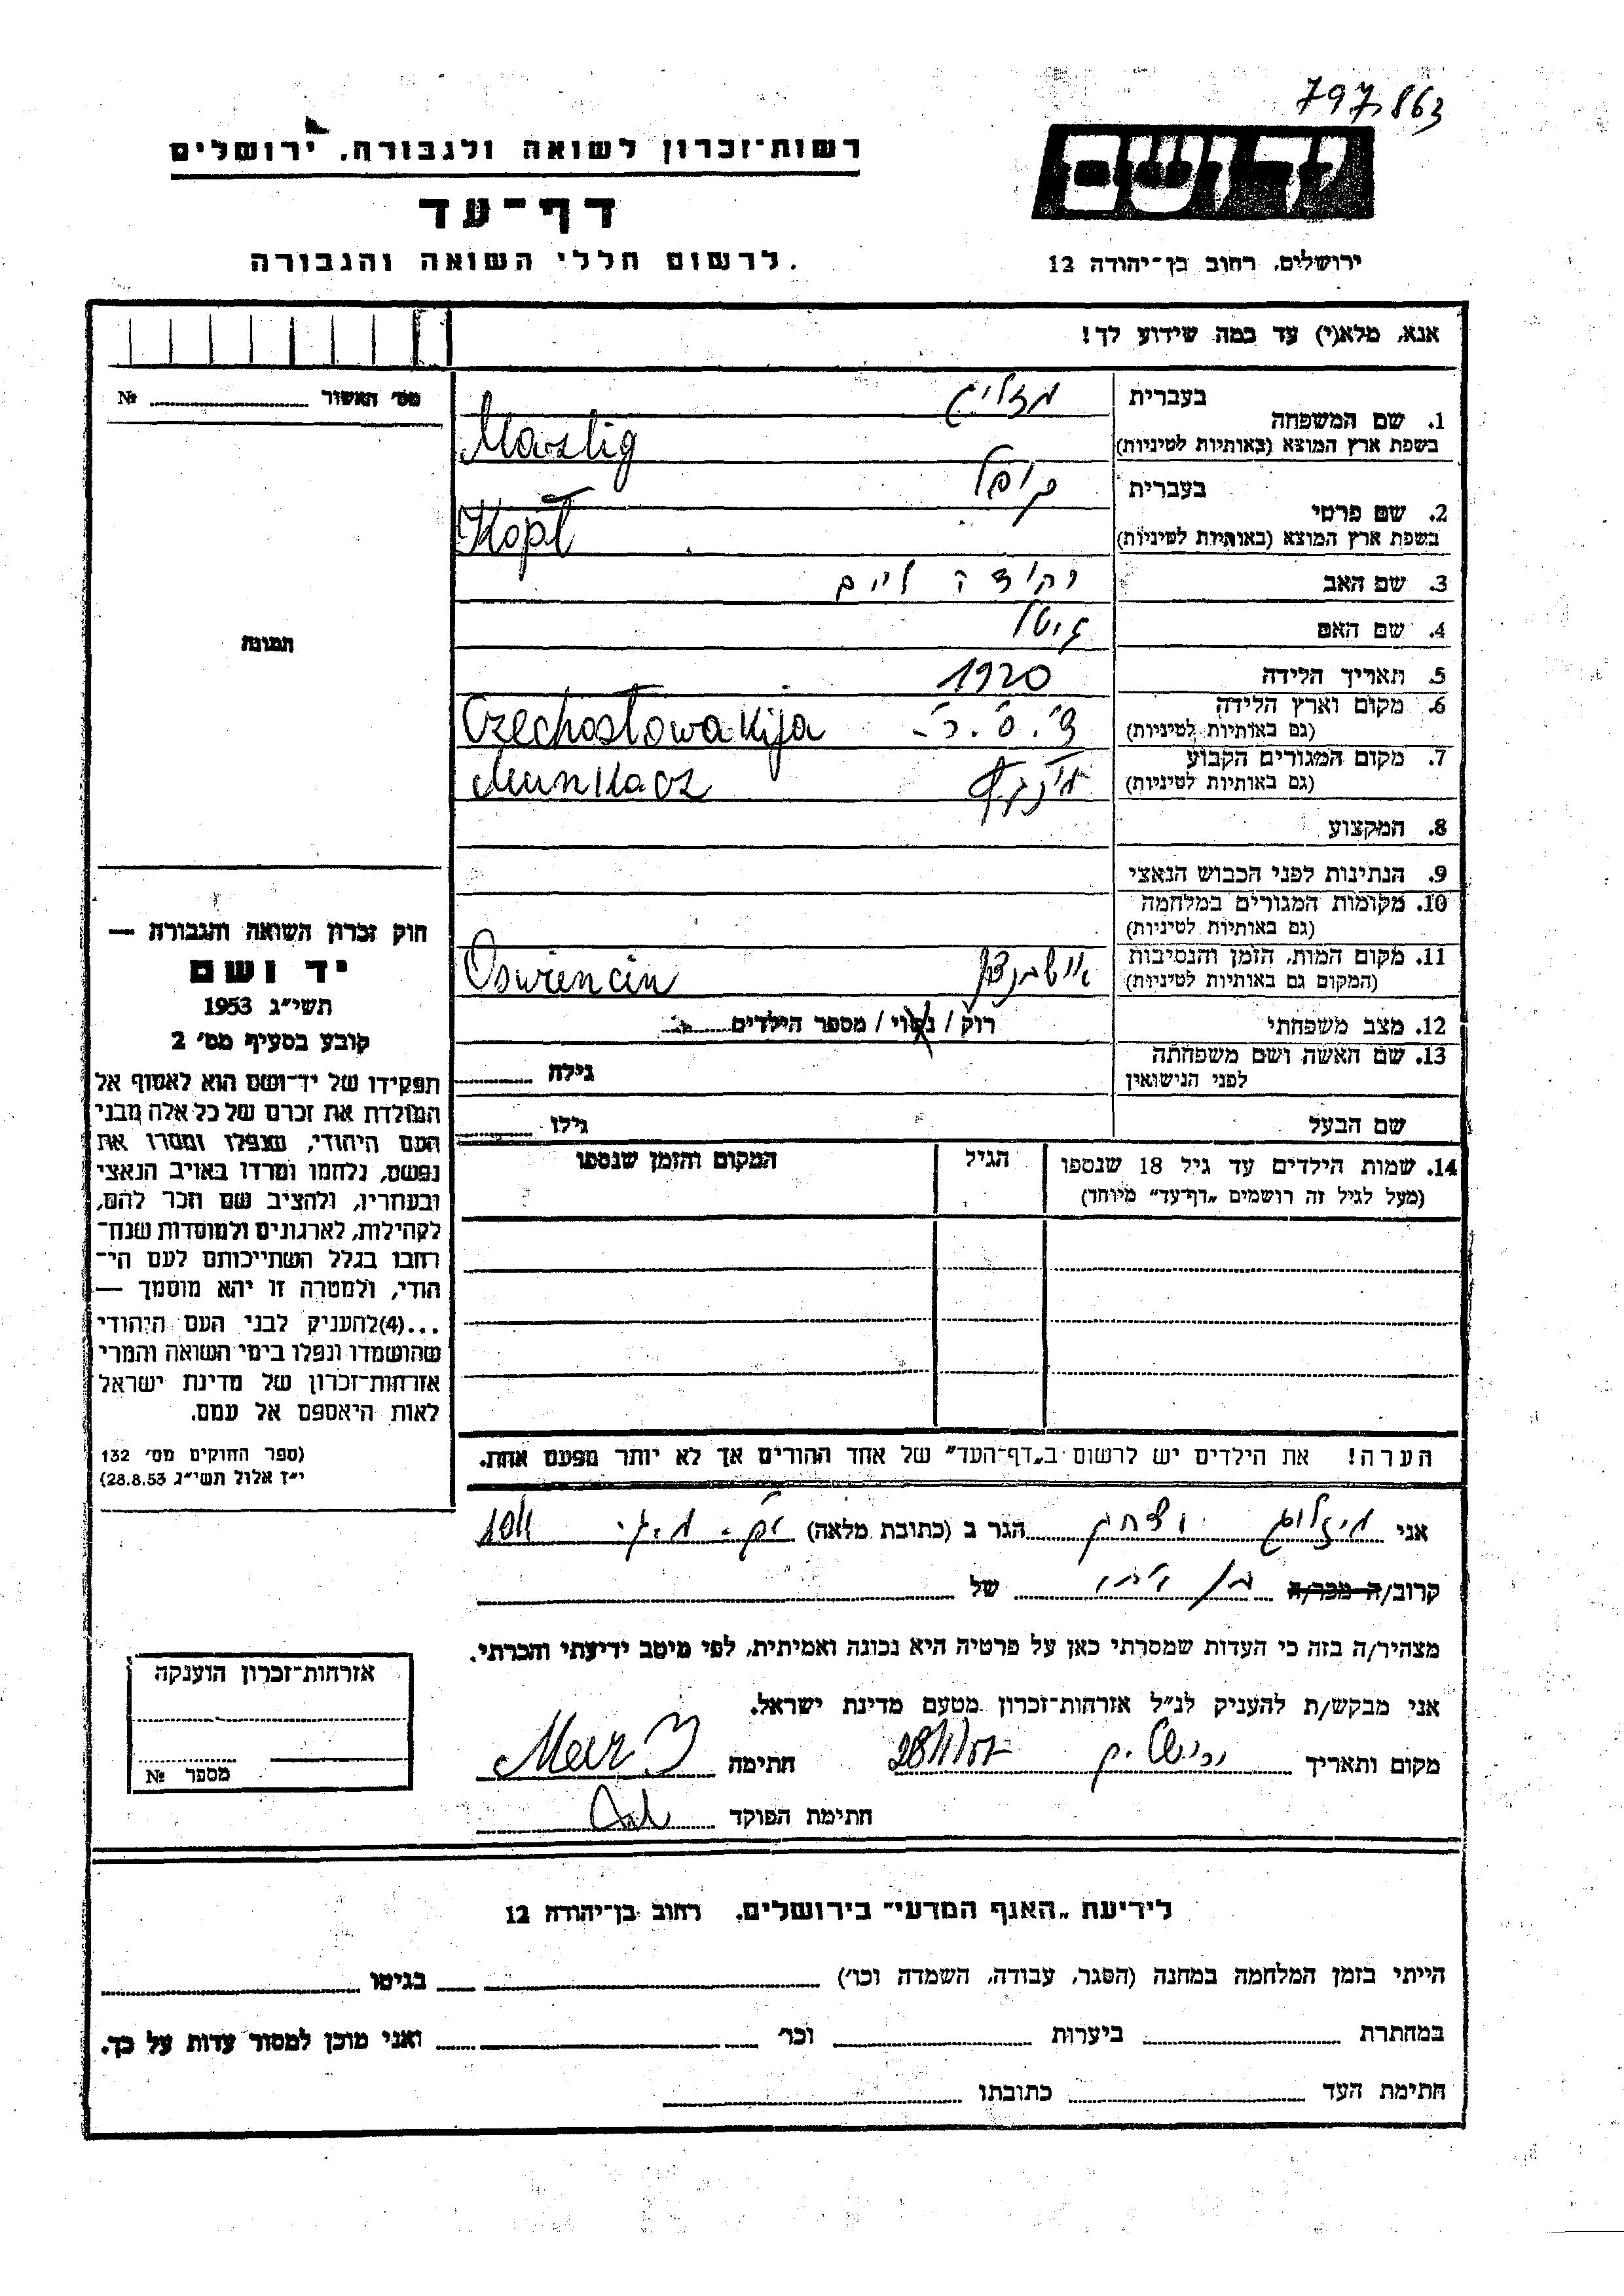 797,863
רשות־זכרון לשואה ולגבורה, ירושלים
דף־עד
לרשום חללי השואה והגבורה
ירושלים, רחוב בן־יהודה 12
אנא, מלא(י) עד כמה שידוע לך!
מס׳ האשור № 
1. שם המשפחה
בעברית
בשפת ארץ המוצא (באותיות לטיניות)
Mazlig
2. שם פרטי
בעברית
בשפת ארץ המוצא (באותיות לטיניות)
Kopl
3. שם האב
4. שם האם
גיטל
5. תאריך הלידה 1920
6. מקום וארץ הלידה
(גם באותיות לטיניות)
צ׳.ס.ר. Czechosłowakija
7. מקום המגורים הקבוע
(גם באותיות לטיניות)
Munkacz
8. המקצוע
9. הנתינות לפני הכבוש הנאצי
10. מקומות המגורים במלחמה
(גם באותיות לטיניות)
11. מקום המות, הזמן והנסיבות
(המקום גם באותיות לטיניות)
Oswiencin
12. מצב משפחתי רוק / נשוי / מספר הילדים
13. שם האשה ושם משפחתה
לפני הנישואין
גילה
שם הבעל גילו
14. שמות הילדים עד גיל 18 שנספו
(מעל לגיל זה רושמים „דף־עד״ מיוחד)
הגיל
המקום והזמן שנספו
הערה! את הילדים יש לרשום ב„דף־העד״ של אחד ההורים אך לא יותר מפעם אחת.
תמונה
חוק זכרון השואה והגבורה —
יד ושם
תשי״ג 1953
קובע בסעיף מס׳ 2
תפקידו של יד־ושם הוא לאסוף אל
המולדת את זכרם של כל אלה מבני
העם היהודי, שנפלו ומסרו את
נפשם, נלחמו ומרדו באויב הנאצי
ובעוזריו, ולהציב שם וזכר להם,
לקהילות, לארגונים ולמוסדות שנח־
רבו בגלל השתייכותם לעם הי־
הודי, ולמטרה זו יהא מוסמך —
...(4) להעניק לבני העם היהודי
שהושמדו ונפלו בימי השואה והמרי
אזרחות־זכרון של מדינת ישראל
לאות היאספם אל עמם.
(ספר החוקים מס׳ 132
י״ז אלול תשי״ג 28.8.53)
אני הגר ב (כתובת מלאה)
קרוב/ה מכר/ה של
מצהיר/ה בזה כי העדות שמסרתי כאן על פרטיה היא נכונה ואמיתית, לפי מיטב ידיעתי והכרתי.
אני מבקש/ת להעניק לנ״ל אזרחות־זכרון מטעם מדינת ישראל.
מקום ותאריך חתימה
חתימת הפוקד
אזרחות־זכרון הוענקה
מספר №
לידיעת „האגף המדעי״ בירושלים, רחוב בן־יהודה 12
הייתי בזמן המלחמה במחנה (הסגר, עבודה, השמדה וכו׳) בגיטו
במחתרת ביערות וכו׳ ואני מוכן למסור עדות על כך.
חתימת העד כתובתו